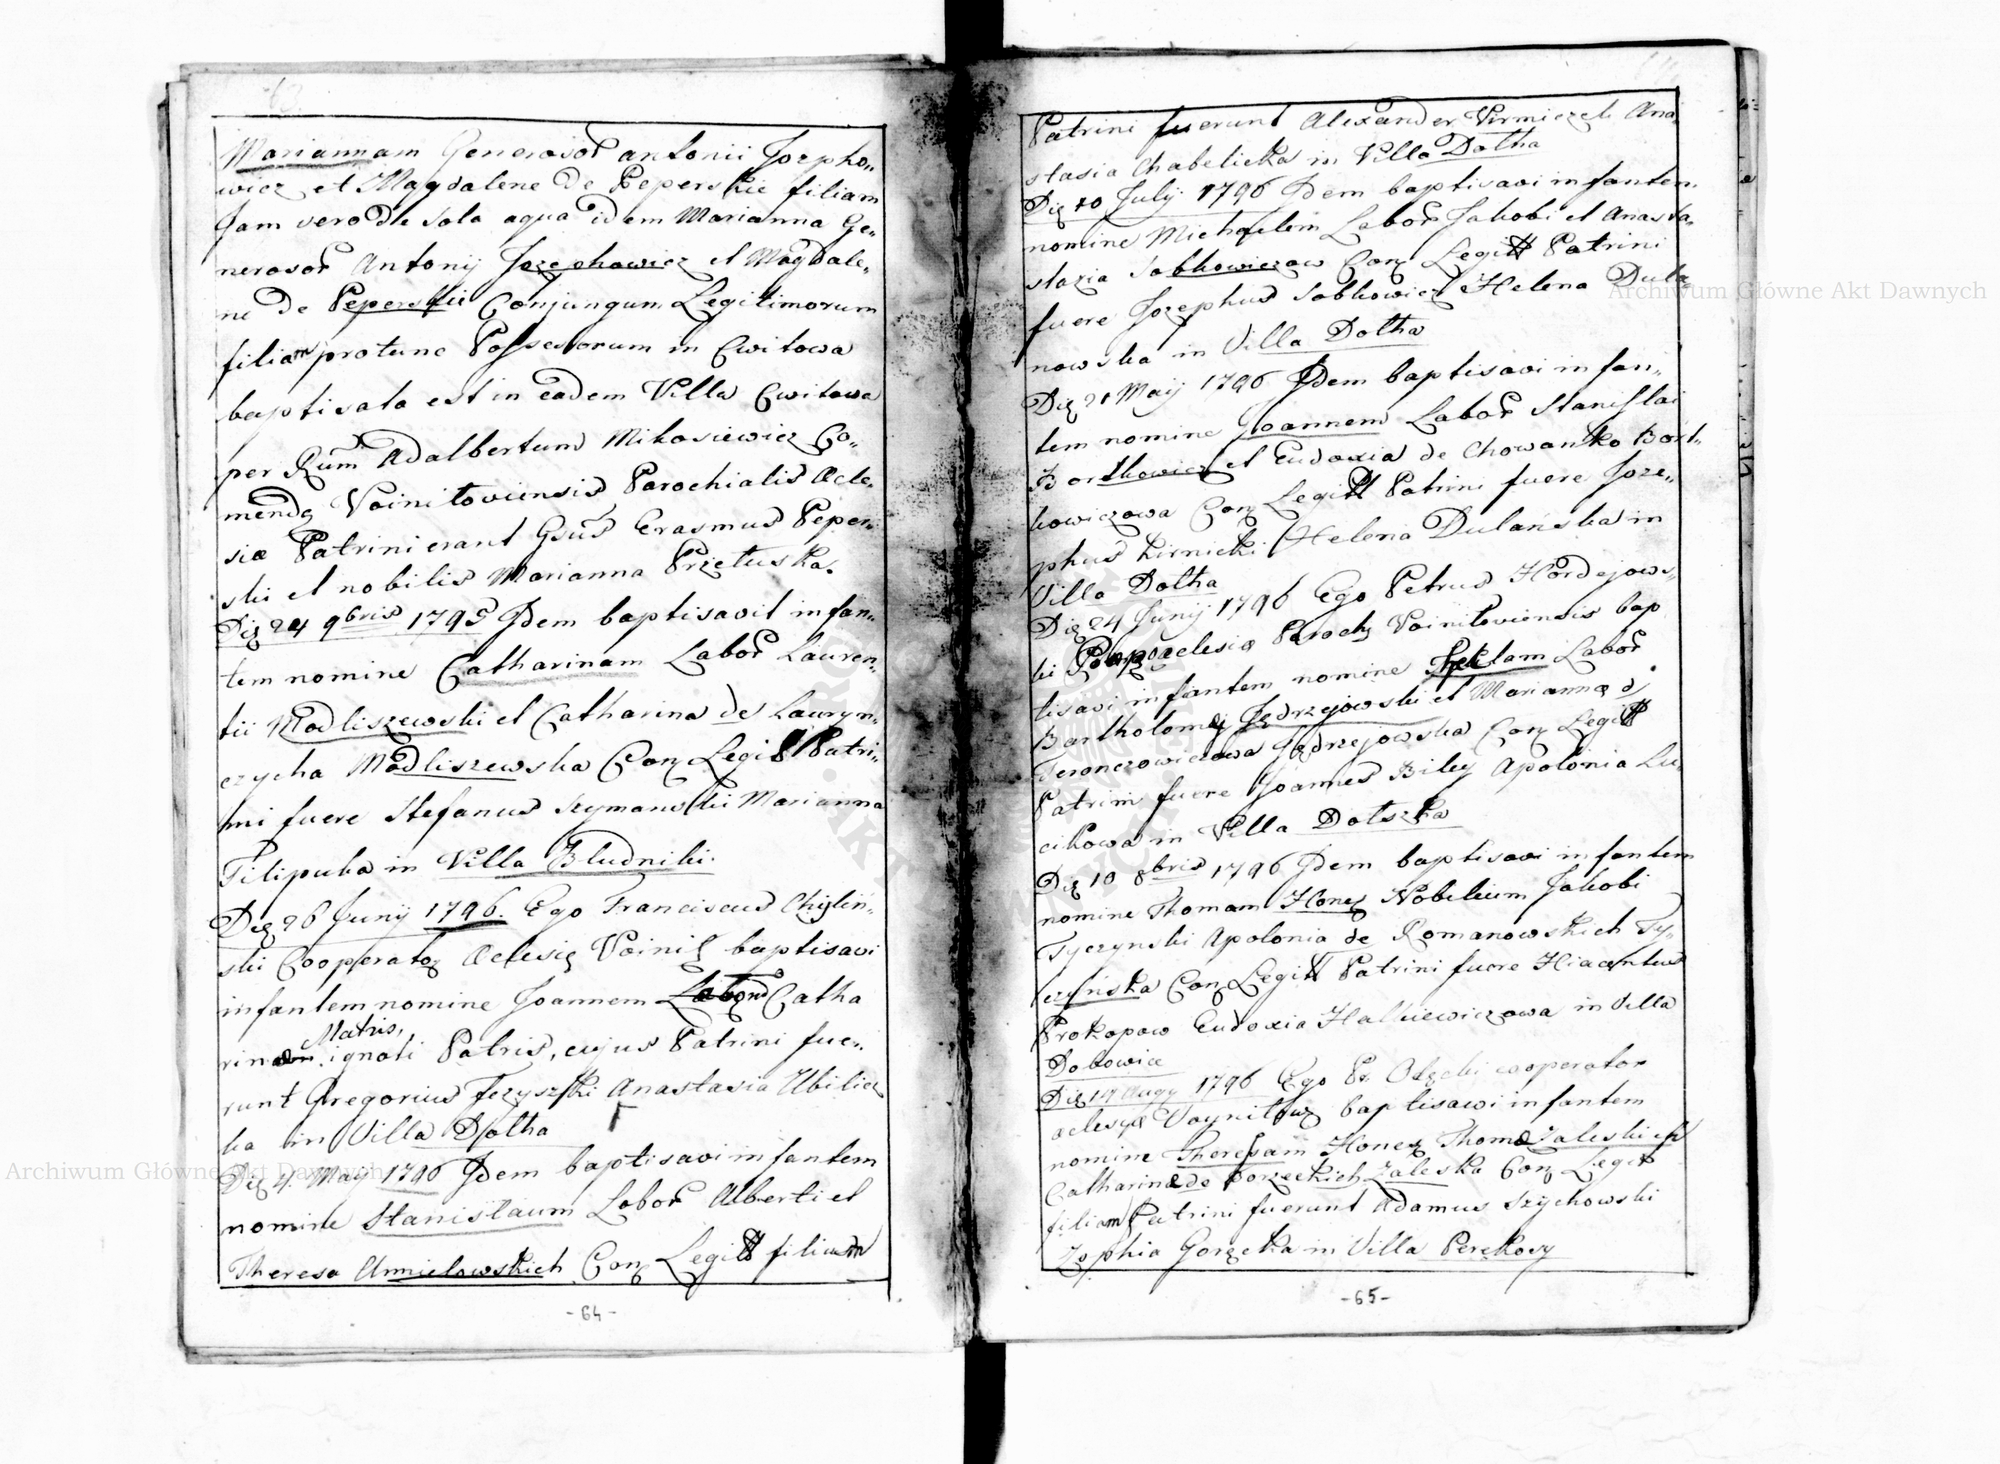 Mariannam Generosor̃ Antonii Jozepho„
wicz et Magdalene de Peperskie filiam
Jam vero de sola aqua idem Marianna Ge„
nerosor̃ Antonij Jozephowicz et Magdale„
ne de Peperskii Conjungum Legitimorum
filiam protunc Possessorum in Cwitowa
baptisata est in eadem Villa Cwitowa
per Rum̃ Adalbertum Mikosiewicz Co„
mendę Voinitoviensis Parochialis Acle„
siæ Patrini erant Gsus̃ Erasmus Peper„
ski et nobilis Marianna Przetuska.
Dię 24 9bris 1795 Jdem baptisavit infan„
tem nomine Catharinam Labor̃ Lauren„
tii Modliszewski et Catharina de Lauryn„
czycha Modliszewska Conȝ Legitt Patri„
ni fuere Stefanus Szymanski Marianna
Filipuka in Villa Bludniki.
Dię 26 Junij 1796. Ego Franciscus Chylin„
ski Cooperator Aclesię Voinił baptisavi
infantem nomine Joannem Labor Catha
Matris,
rinæ ignoti Patris, cujus Patrini fue„
runt Gregorius Tezyszki Anastasia Ubilic
ka in Villa Dołha
Dię 4 May 1796 Jdem baptisavi infantem
nomine Stanisłaum Labor̃ Alberti et
Theresa Amielowskich Conȝ Legitt filium
-64-
Patrini fuerunt Alexander Virniczek Ana„
stasia Chabelicka in Villa Dołha
Dię 10 July 1796 Jdem baptisavi infantem
nomine Michaelem Labor̃ Jakobi et Anasta„
stazia Sobkowiczow Conȝ Legitt Patrini
fuere Jozephus Sobkowicz Helena Dula„
nowska in Villa Dołha
Dię 21 Maij 1796 Jdem baptisavi infan„
tem nomine Joannem Labor̃ Stanisłai
Bortkowicz et Eudoxia de Chowanko Bort„
kowiczowa Conȝ Legitt Patrini fuere Joze„
phus Lirnicki Helena Dulańska in
Villa Dołha
Dię 24 Junij 1796 Ego Petrus Hordejows„
ki aclesiæ Paroch Voinitoviensis bap
tisavi infantem nomine Theklam Labor̃
Bartholomej Jędrzejowski et Mariannæ d
Feronczowiczowa Jędrzejowska Conȝ Legitt
Patrini fuere Joannes Biley Apolonia Lu„
cikowa in Villa Dołszka
Dię 10 8bris 1796 Jdem baptisavi infantem
nomine Thomam Honeȝ Nobilium Jakobi
Tyczynski Apolonia de Romanowskich Ty„
czyńska Conȝ Legitt Patrini fuere Hiacentus
Prokopow Eudoxia Halkiewiczowa in Villa
Dobowice
Dię 14 Augy 1796 Ego Pr. cooperator
aclesyæ Voynitow baptisawi infantem
nomine Theressam Honeȝ Thomæ Zaleskich
Catharinæ de Gorzeckich Zaleska Conȝ Legit
filiam Patrini fuerunt Adamus Szychowski
Zophia Gorzecka in Villa Perekosy
-65-
Archiwum Główne Akt Dawnych
Archiwum Główne Akt Dawnych